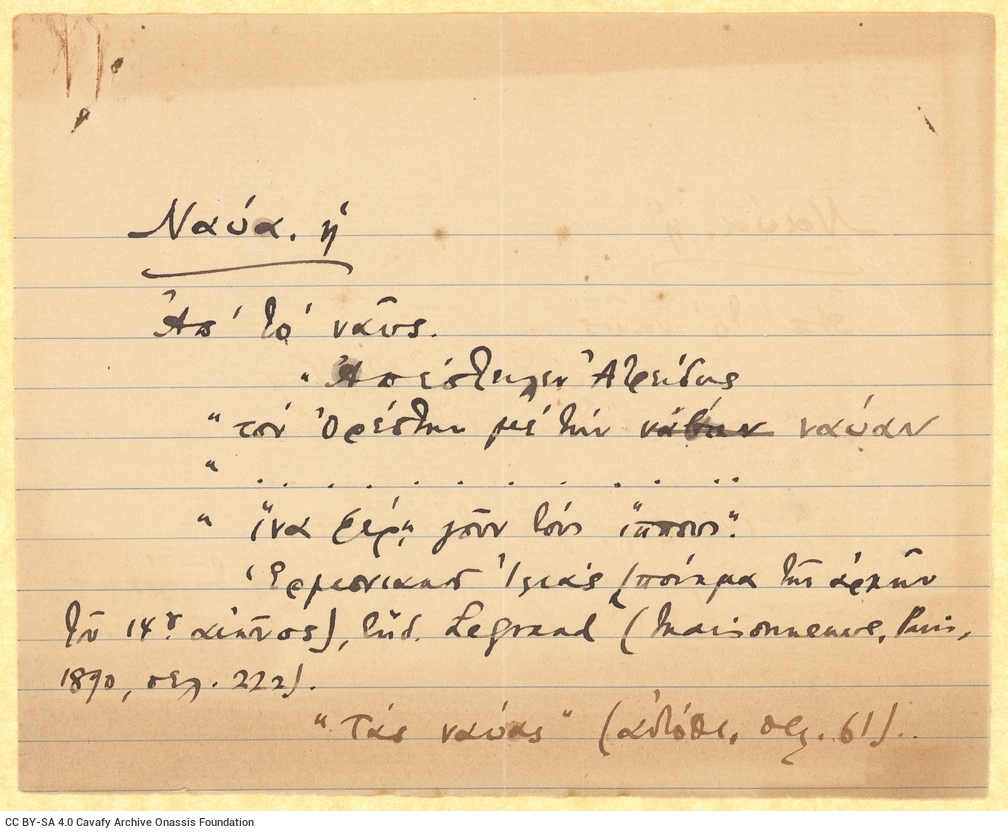 Ναύα, ἡ
Ἀπ' τὸ ναῦς.
"Ἀπέστειλεν Ἀτρείδης
"τὸν Ὀρέστην μὲ τὴν νάβαν ναύαν
" . . . . . . . . . . . .
" ἵνα φέρῃ γοῦν τοὺς ἵππους".
Ἑρμονιακοῦ Ἰλιὰς (ποίημα τῆς ἀρχῆς
τοῦ 14ου αἰῶνος), ἔκδ. Legrand (Maisonneuve, Paris,
1890, σελ. 222).
"τὰς ναύας" (αὐτόθι, σελ. 61).
CC BY-SA 4.0 Cavafy Archive Onassis Foundation